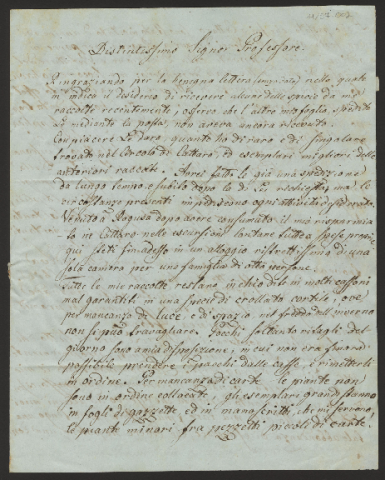 Distintissimo Signor Professore.
Ringraziando per la benevana lettera nella quale
m'indica il desiderio di ricevere alcune delle specie da me
raccolte recentemente; osservo che l'altro mio foglio spedito
Le mediante la posta, non aveva ancora ricevuto.
Compiacere Le darò, quanto ho di raro e di singolare
trovato nel Circolo di Cattaro, ed esemplari migliori delle
anteriori raccolte. Avrei fatto le già una spedizione
da lungo tempo, e subito dopo la di Le richiesta, ma le
circostanze presenti impediscono ogni attività desiderata.
Venuto a Ragusa dopo avere consumato il mio risparmio
la in Cattaro nelle escursioni lontane tutte a spese proprie
qui steti fin adesso in un alloggio ristrettissimo di una
sola camera per uno famiglia di otto persone.
Tutte le mie raccolte restano inchiodati in molti cassoni
mal garantiti, in una specie di crollato cortile, ove
per mancanza di luce, e di spazio, nel freddo dell'inverno
non si può travagliare. Pochi soltanto ritagli del
giorno sono a mia disposizione, in cui non era fuori
possibile prendere i pacchi dalle casse, e rimetterli
in ordine. Per mancanza di carte le piante non
sono in ordine collocate, gli esemplari grandi stanno
in fogli di gazzette, ed in manoscritti, che mi servono,
le piante minori fra pezzetti piccoli di carte.